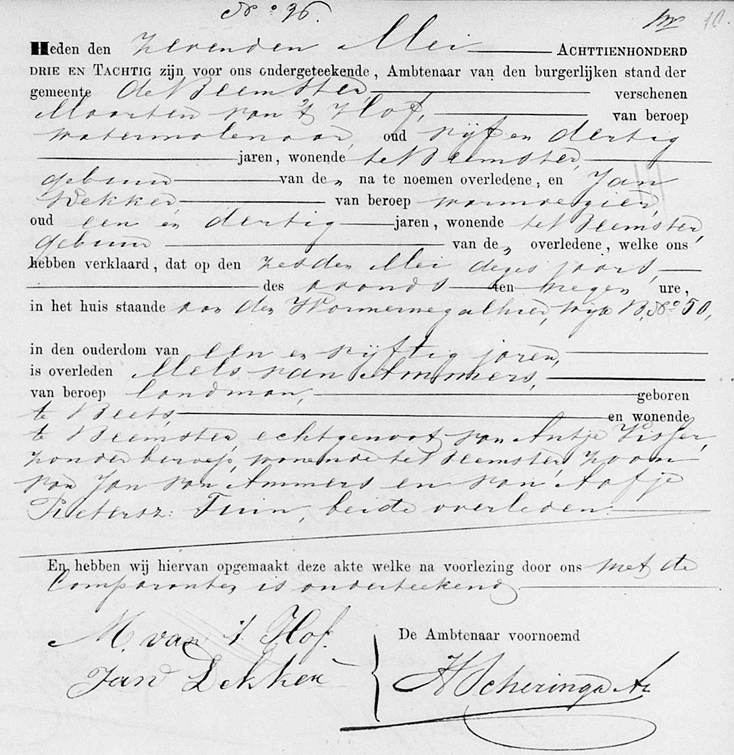 No. 26.
10.
Heden den zevenden Mei ACHTTIENHONDERD
DRIE EN TACHTIG zijn voor ons ondergeteekende, Ambtenaar van den burgerlijken stand der
gemeente de Beemster, verschenen
Maarten van 't Hof, van beroep
watermolenaar, oud vijf en dertig
jaren, wonende te Beemster,
gebuur van de n na te noemen overledene, en Jan
Dekker van beroep warmoezier,
oud een en dertig jaren, wonende te Beemster,
gebuur van de n overledene, welke ons
hebben verklaard, dat op den zesden Mei dezes jaars,
des avonds ten negen ure,
in het huis staande aan den Wormerweg alhier, wijk B, No. 50,
in den ouderdom van een en vijftig jaren,
is overleden Mels van Ammers,
van beroep landman, geboren
te Beets en wonende
te Beemster echtgenoot van Antje Visser,
zonder beroep, wonende te Beemster, zoon
van Jan van Ammers en van Aafje
Pietersz: Tuin, beide overleden.
En hebben wij hiervan opgemaakt deze akte welke na voorlezing door ons met de
Comparanten is onderteekend
M. van 't Hof.
Jan Dekker
De Ambtenaar voornoemd
K Scheringa Az